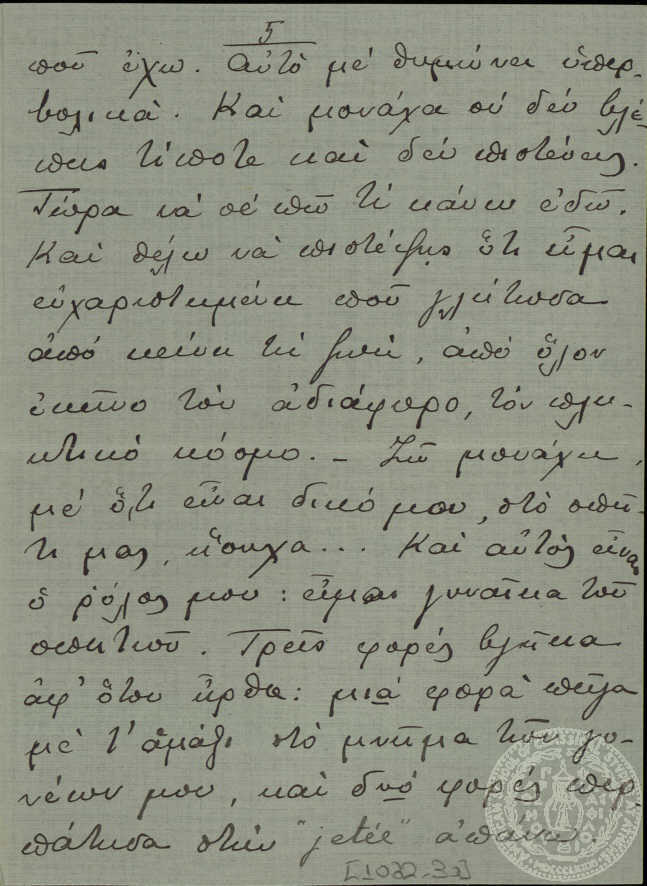 5
ποῦ ἔχω. Αὐτὸ μέ θυμώνει ὑπερ-
βολικά. Καὶ μονάχα σύ δέν βλέ-
πεις τίποτε καὶ δέν πιστεύεις.
Τώρα νὰ σέ πῶ τί κάνω ἐδῶ.
Καὶ θέλω νὰ πιστέψῃς ὅτι εἶμαι
εὐχαριστημένη ποῦ γλύτωσα
ἀπό κείνη τή ζωή, ἀπό ὅλον
ἐκεῖνο τὸν ἀδιάφορο, τόν πλη-
κτικό κόσμο. – Ζῶ μονάχη,
μέ ὅ,τι εἶναι δικό μου, στό σπί-
τι μας, ἥσυχα... Καὶ αὐτός εἶναι
ὁ ρόλος μου: εἶμαι γυναῖκα τοῦ
σπιτιοῦ. Τρεῖς φορές βγῆκα
ἀφ' ὅτου ἦρθα: μιά φορὰ πῆγα
μέ τ' ἀμάξι στό μνῆμα τῶν γο-
νέων μου, καὶ δυό φορές περ-
πάτησα στήν "jetée" ἀπάνω.
[1022-32]